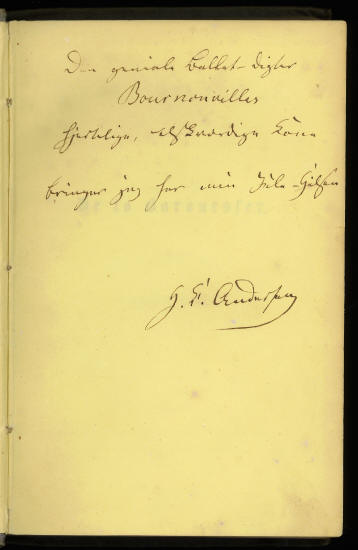 Den geniale Ballet-Digter
Bournonvilles
hjertelige, elskværdige Kone
bringer jeg her min Jule-Hilsen
H. C. Andersen